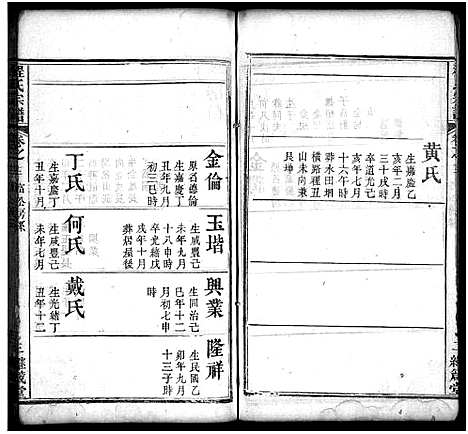 黄氏
生嘉慶乙
亥年二月
三十戌時
卒道光己
亥年七月
十六午時
葬水田垌
橫路程丑
山未向兼
艮坤
金倫
原名德倫
生嘉慶丁
丑年九月
初二巳時
玉堦
生咸豐己
未年九月
十八申時
卒光緒戊
戌年十月
葬居屋後
興業
生同治己
巳年十二
月初七申
時
隆祥
生民國乙
卯年九月
十三子時
丁氏
生嘉慶丁
丑年十月
何氏
生咸豐己
未年七月
戴氏
生光緒丁
丑年十二
氏宗譜
卷之